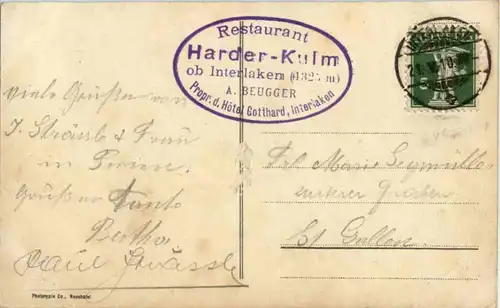 Restaurant
Harder-Kulm
ob Interlaken (1325 m)
A. BEUGGER
Propr. d. Hôtel Gotthard, Interlaken
INTERLAKEN
Viele Grüsse von
J. Strässle & Frau
in
Gruss an Tante
Bertha
Paul Strässle
Frl Marie
unterer Graben
St Gallen
Phototypie Co., Neuchâtel